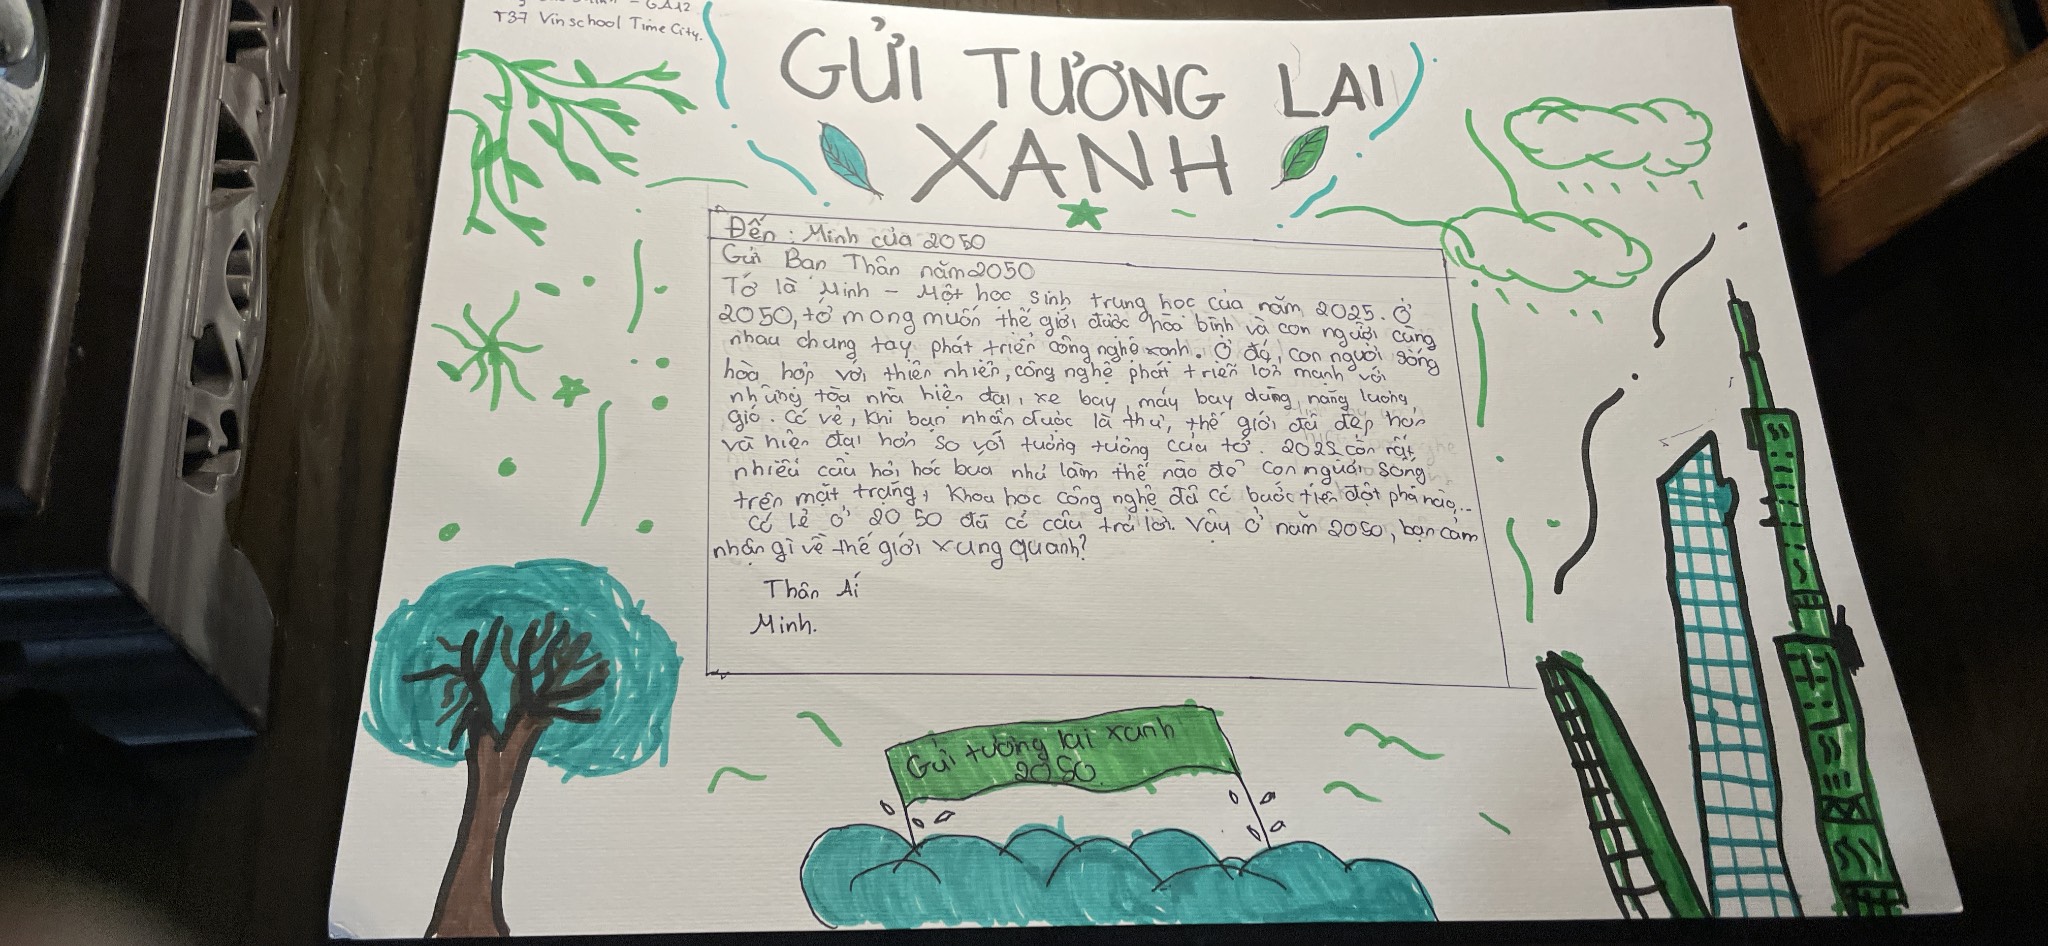 - GA12
T37 Vinschool Time City.
GỬI TƯƠNG LAI
XANH
Đến : Minh của 2050
Gửi Bạn Thân năm 2050
Tớ là Minh - Một học sinh trung học của năm 2025. Ở
2050, tớ mong muốn thế giới được hòa bình và con người cùng
nhau chung tay phát triển công nghệ xanh. Ở đó, con người sống
hòa hợp với thiên nhiên, công nghệ phát triển lớn mạnh với
những tòa nhà hiện đại, xe bay, máy bay dùng năng lượng
gió. Có vẻ, khi bạn nhận được lá thư, thế giới đã đẹp hơn
và hiện đại hơn so với tưởng tượng của tớ. 2025 còn rất
nhiều câu hỏi hóc búa như làm thế nào để con người sống
trên mặt trăng, khoa học công nghệ đã có bước tiến đột phá nào...
Có lẽ ở 2050 đã có câu trả lời. Vậy ở năm 2050, bạn cảm
nhận gì về thế giới xung quanh?
Thân Ái
Minh.
Gửi tương lai xanh
2050